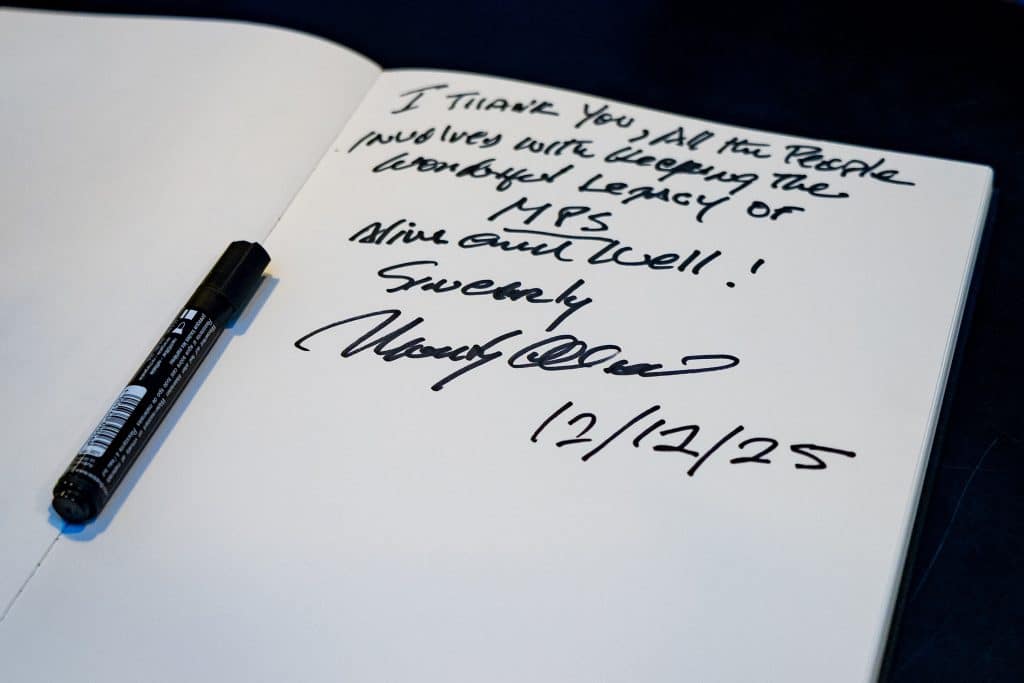 I THANK YOU, All the PEOPLE
INVOLVES with Keeping the
Wonderful LEGACY OF
MPS
Alive and Well!
Sincerly
12/12/25